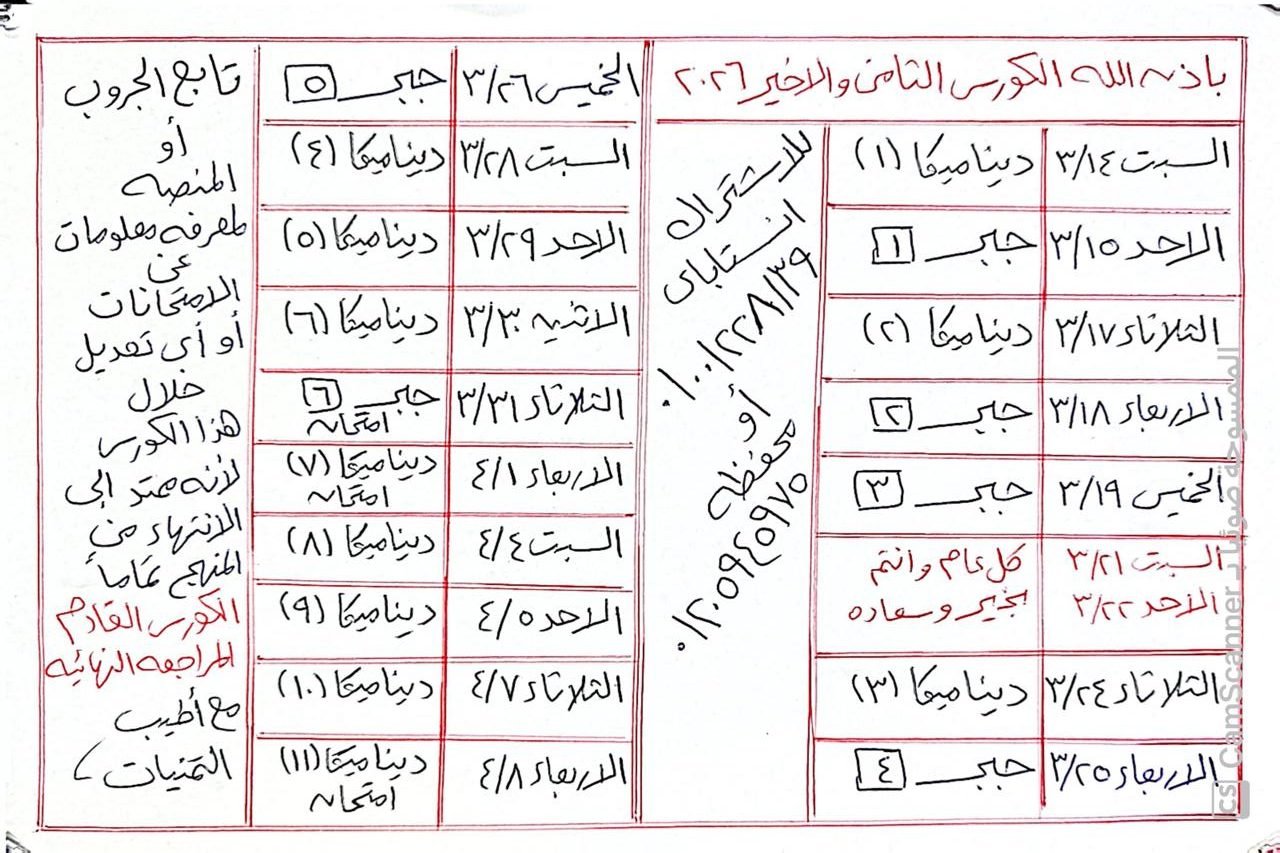 باذن الله الكورس الثامن والاخير ٢٠٢٦
السبت ٣/١٤ ديناميكا (١)
الاحد ٣/١٥ جبر ١
الثلاثاء ٣/١٧ ديناميكا (٢)
الاربعاء ٣/١٨ جبر ٢
الخميس ٣/١٩ جبر ٣
السبت ٣/٢١ كل عام وانتم
الاحد ٣/٢٢ بخير وسعاده
الثلاثاء ٣/٢٤ ديناميكا (٣)
الاربعاء ٣/٢٥ جبر ٤
للاشتراك
انستاباى
أو
محفظه
٠١٢٠٥٩٤٥٩٧٥
الخميس ٣/٢٦ جبر ٥
السبت ٣/٢٨ ديناميكا (٤)
الاحد ٣/٢٩ ديناميكا (٥)
الاثنين ٣/٣٠ ديناميكا (٦)
الثلاثاء ٣/٣١ جبر ٦
امتحان
الاربعاء ٤/١ ديناميكا (٧)
امتحان
السبت ٤/٤ ديناميكا (٨)
الاحد ٤/٥ ديناميكا (٩)
الثلاثاء ٤/٧ ديناميكا (١٠)
الاربعاء ٤/٨ ديناميكا (١١)
امتحان
تابع الجروب
أو
المنصه
لمعرفه معلومات
عن
الامتحانات
أو أى تعديل
خلال
هذا الكورس
لأنه ممتد إلى
الانتهاء من
المنهج تماماً
الكورس القادم
المراجعه النهائيه
مع أطيب
التمنيات
الممسوحة ضوئيا بـ CamScanner
CS